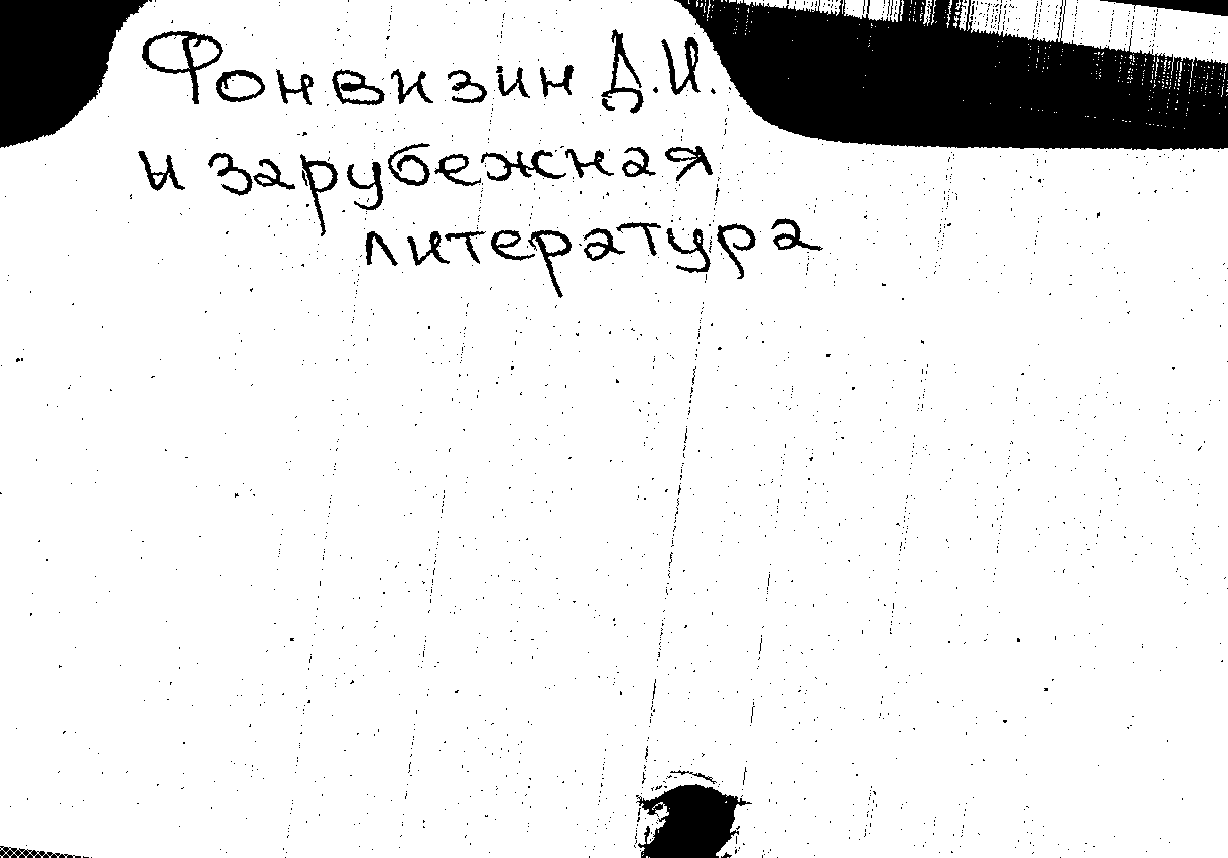 Фонвизин Д.И.
и зарубежная
литература